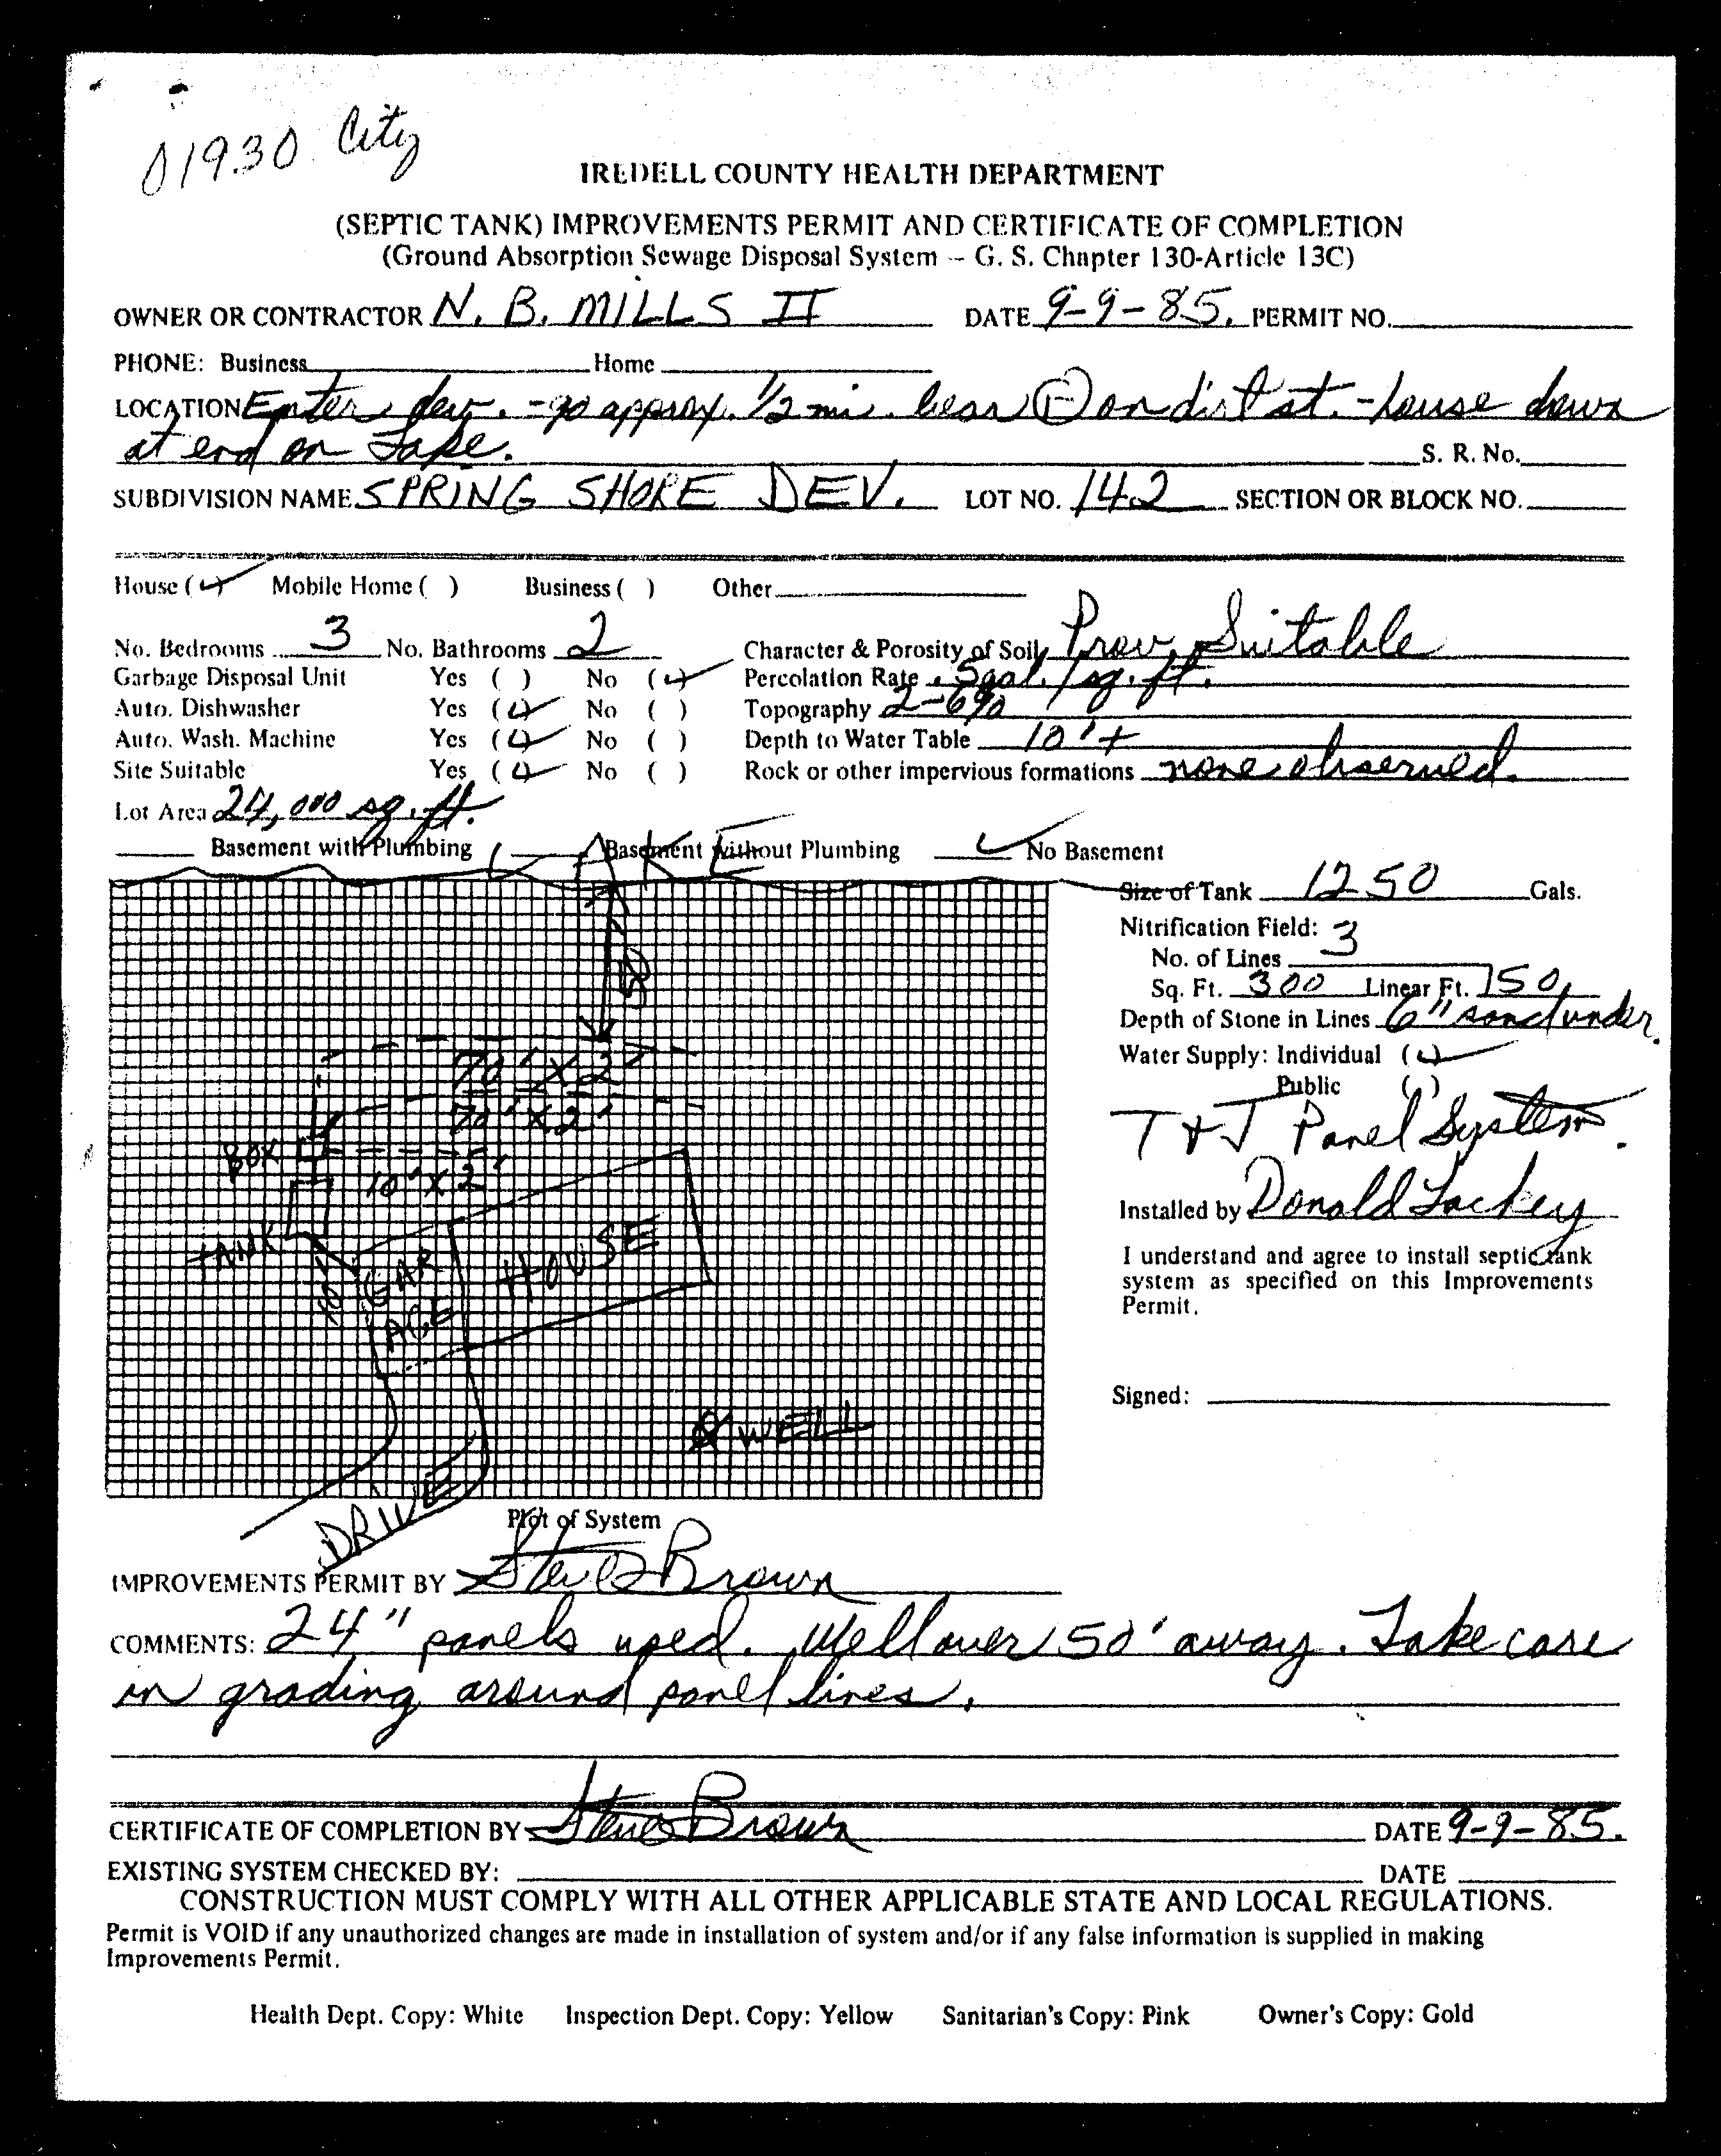 01930 City
IREDELL COUNTY HEALTH DEPARTMENT
(SEPTIC TANK) IMPROVEMENTS PERMIT AND CERTIFICATE OF COMPLETION
(Ground Absorption Sewage Disposal System -- G. S. Chapter 130-Article 13C)
OWNER OR CONTRACTOR N. B. MILLS II DATE 9-9-85. PERMIT NO.
PHONE: Business Home
LOCATION Enter dev. - go approx. 1/2 mi. bear on dirt st. - house down
at end on Lake. S. R. No.
SUBDIVISION NAME SPRING SHORE DEV. LOT NO. 142 SECTION OR BLOCK NO.
House (✓) Mobile Home ( ) Business ( ) Other
No. Bedrooms 3 No. Bathrooms 2 Character & Porosity of Soil Prov. Suitable
Garbage Disposal Unit Yes ( ) No (✓) Percolation Rate .5 gal./sq. ft.
Auto. Dishwasher Yes (✓) No ( ) Topography 2-6%
Auto. Wash. Machine Yes (✓) No ( ) Depth to Water Table 10'+
Site Suitable Yes (✓) No ( ) Rock or other impervious formations none observed.
Lot Area 24,000 sq. ft.
Basement with Plumbing Basement without Plumbing ✓ No Basement
LAKE
Size of Tank 1250 Gals.
Nitrification Field:
No. of Lines 3
Sq. Ft. 300 Linear Ft. 150
Depth of Stone in Lines 6" sand under.
Water Supply: Individual (✓)
Public ( )
T & J Panel System.
Installed by Donald Lackey
I understand and agree to install septic tank
system as specified on this Improvements
Permit.
Signed:
70' X 2'
70' X 2'
BOX
10' X 2'
TANK
10'
GAR
AGE
HOUSE
WELL
DRIVE
Plot of System
IMPROVEMENTS PERMIT BY Steve Brown
COMMENTS: 24" panels used. Well over 50' away. Take care
in grading around panel lines.
CERTIFICATE OF COMPLETION BY Steve Brown DATE 9-9-85.
EXISTING SYSTEM CHECKED BY: DATE
CONSTRUCTION MUST COMPLY WITH ALL OTHER APPLICABLE STATE AND LOCAL REGULATIONS.
Permit is VOID if any unauthorized changes are made in installation of system and/or if any false information is supplied in making
Improvements Permit.
Health Dept. Copy: White Inspection Dept. Copy: Yellow Sanitarian's Copy: Pink Owner's Copy: Gold